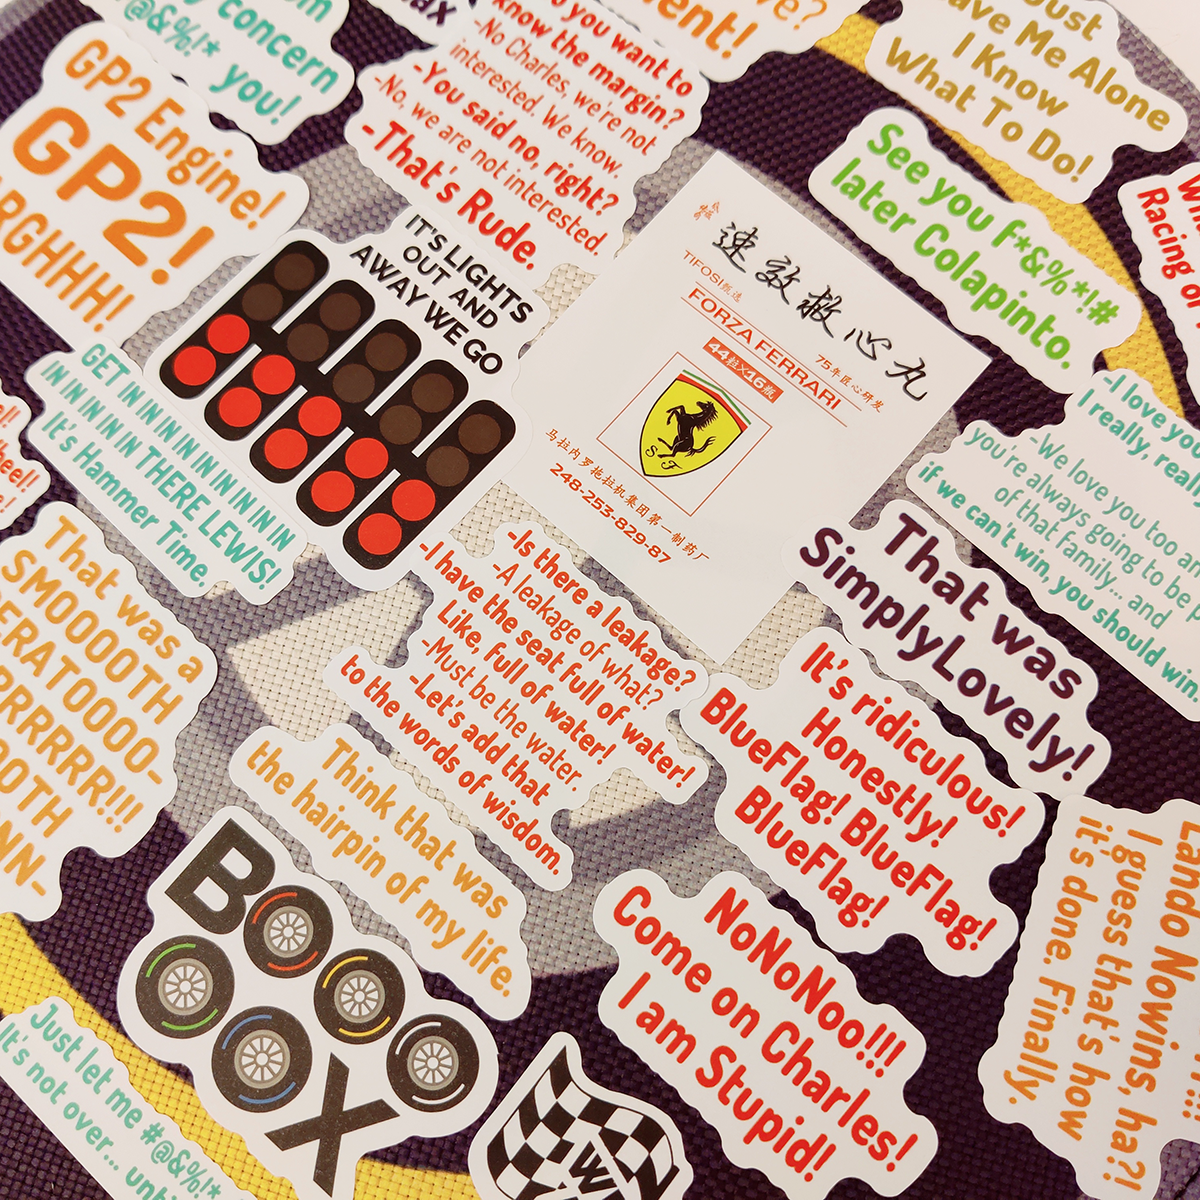 concern
#@&%!* you!
ax
you want to
know the margin?
-No Charles, we're not
interested. We know.
-You said no, right?
-No, we are not interested.
-That's Rude.
ve?
ent!
Just
ave Me Alone
I Know
What To Do!
GP2 Engine!
GP2!
ARGHHH!
IT'S LIGHTS
OUT AND
AWAY WE GO
速效救心丸
TIFOSI甄选
75年匠心研发
FORZA FERRARI
44粒×16瓶
S F
马拉内罗拖拉机集团第一制药厂
248-253-829-87
See you f*&%*!#
later Colapinto.
Racing
GET IN IN IN IN IN IN IN IN
IN IN IN IN THERE LEWIS!
It's Hammer Time.
-I love you
I really, really
-We love you too an
you're always going to be p
of that family... and
if we can't win, you should win
That was
SimplyLovely!
That was a
SMOOOOTH
ERATOOOO-
RRRRRRR!!!
OOTH
NN-
-Is there a leakage?
-A leakage of what?
-I have the seat full of water!
Like, full of water!
-Must be the water.
-Let's add that
to the words of wisdom.
It's ridiculous!
Honestly!
BlueFlag! BlueFlag!
BlueFlag!
Think that was
the hairpin of my life.
Lando Nowins, ha?!
I guess that's how
it's done. Finally.
BOOO
OOX
NoNoNoo!!!
Come on Charles!
I am Stupid!
Just let me #@&%!*
It's not over... unti
W